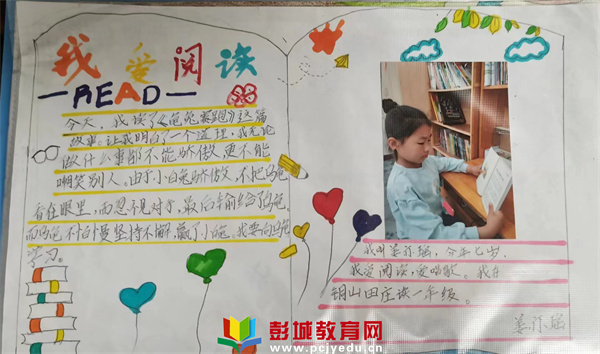 我爱阅读
READ
今天，我读了《龟兔赛跑》这篇
故事。让我明白了一个道理，我无论
做什么事都不能骄傲，更不能
嘲笑别人。由于小白兔骄傲，不把乌龟
看在眼里，而忽视对手，最后输给了乌龟，
而乌龟不自卑坚持不懈，赢了小兔。我要向乌龟
学习。
我叫姜，今年七岁，
我爱阅读，爱唱歌。我在
铜山田庄读一年级。
姜
彭城教育网
www.pcjyedu.cn